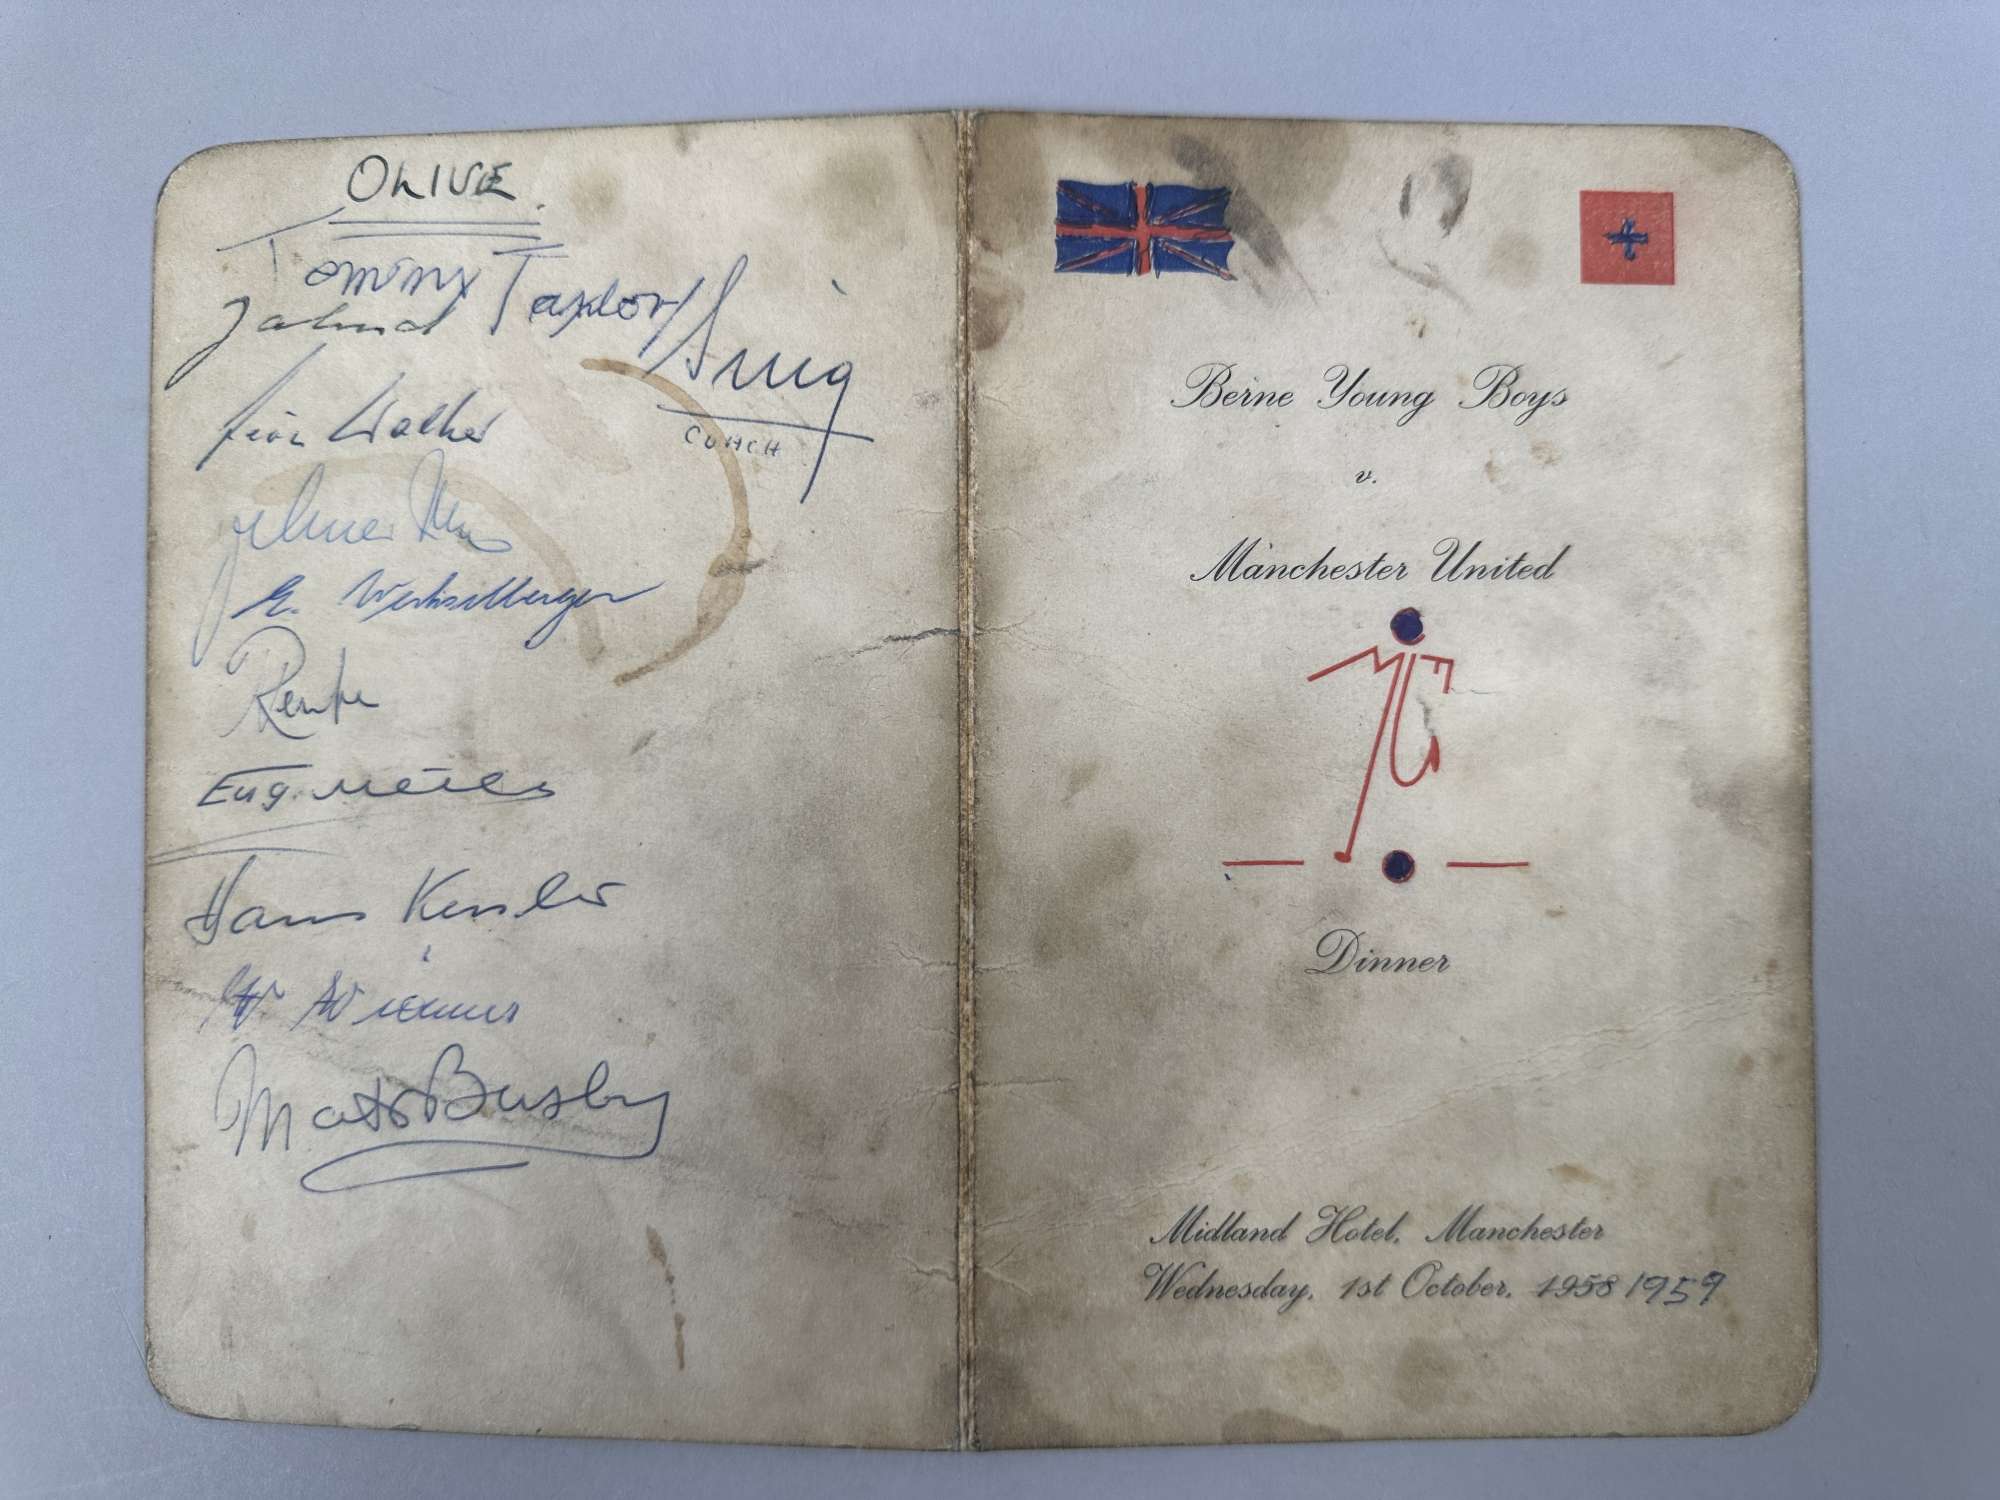 OLIVE.
Tommy Taylor
COACH
Walker
E. Wechselberger
Eug. Meier
Hans Kessler
Matt Busby
Berne Young Boys
v.
Manchester United
Dinner
Midland Hotel, Manchester
Wednesday, 1st October, 1958 1959